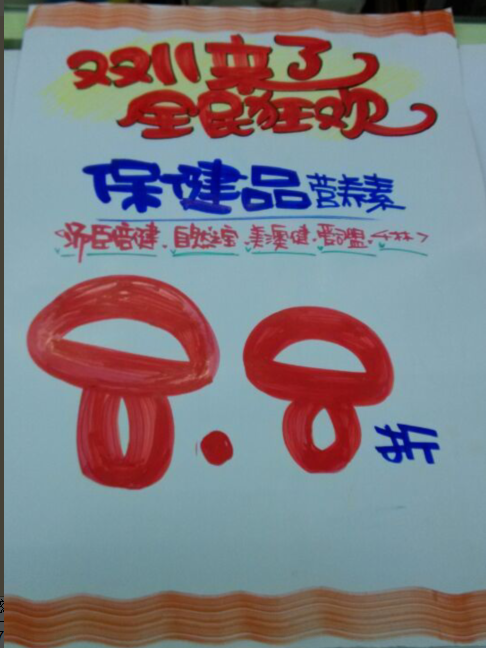 双11来了
全民狂欢
保健品营养素
<汤臣倍健.自然之宝.美澳健.爱司盟.千林>
8.8折